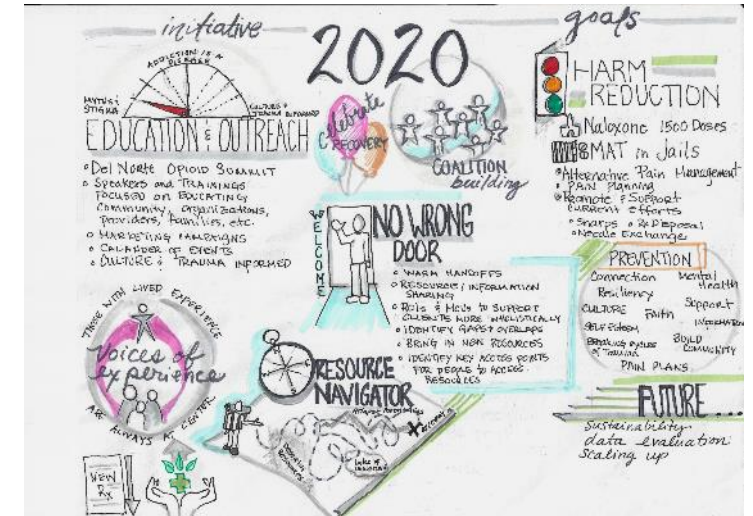 initiative
2020
goals
ADDICTION IS A
DISEASE
MYTHS &
STIGMA
CULTURE &
TRAUMA INFORMED
EDUCATION & OUTREACH
DEL NORTE OPIOID SUMMIT
SPEAKERS AND TRAININGS
FOCUSED ON EDUCATING
COMMUNITY, ORGANIZATIONS,
PROVIDERS, FAMILIES, ETC.
MARKETING CAMPAIGNS
CALANDER OF EVENTS
CULTURE & TRAUMA INFORMED
Celebrate
RECOVERY
COALITION
building
HARM
REDUCTION
Naloxone 1500 Doses
MAT in Jails
Alternative Pain Management
PAIN PLANNING
Promote & Support
CURRENT EFFORTS
Sharps Rx Disposal
Needle Exchange
WELCOME
NO WRONG
DOOR
WARM HANDOFFS
RESOURCE/INFORMATION
SHARING
ROIs & MOUs TO SUPPORT
CLIENTS MORE WHOLISTICALLY
IDENTIFY GAPS & OVERLAPS
BRING IN NEW RESOURCES
IDENTIFY KEY ACCESS POINTS
FOR PEOPLE TO ACCESS
RESOURCES
PREVENTION
Connection
Mental
Health
Resiliency
Support
CULTURE
Faith
SELF ESTEEM
BREAKING CYCLES
OF TRAUMA
BUILD
COMMUNITY
PAIN PLANS
THOSE WITH LIVED EXPERIENCE
Voices of
experience
ARE ALWAYS AT CENTER
RESOURCE
NAVIGATOR
RECOVERY
NEW
Rx
FUTURE...
Sustainability
data evaluation
scaling up